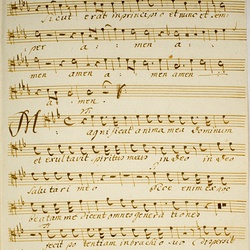 Sicut erat in principio et nunc et sem
per amen a
men amen a men amen
a men.
Magnificat anima mea Dominum
et exultavit spiritus meus in Deo in Deo
salutari meo
beatam me dicent omnes generationes
fecit potentiam in brachio suo Dispersit